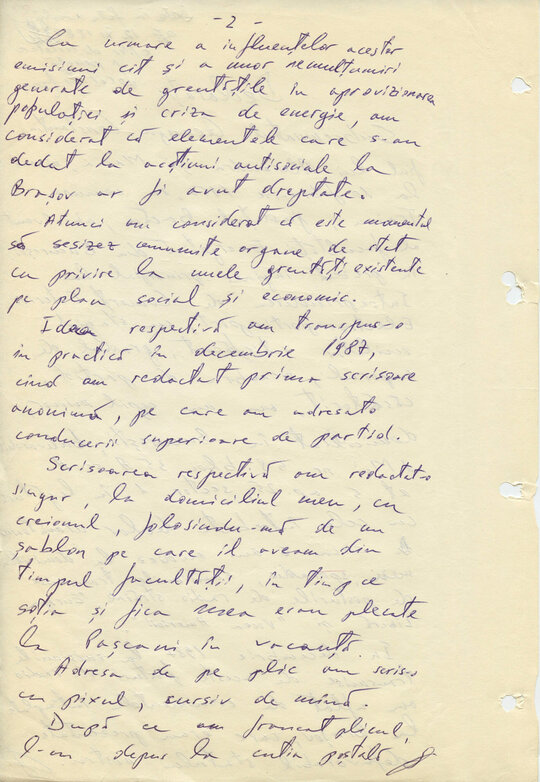 - 2 -
Ca urmare a influențelor acestor
emisiuni cît și a unor nemulțumiri
generate de greutățile în aprovizionarea
populației și criza de energie, am
considerat că elementele care s-au
dedat la acțiuni antisociale la
Brașov ar fi avut dreptate.
Atunci am considerat că este momentul
să sesizez anumite organe de stat
cu privire la unele greutăți existente
pe plan social și economic.
Ideea respectivă am transpus-o
în practică în decembrie 1987,
cînd am redactat prima scrisoare
anonimă, pe care am adresat-o
conducerii superioare de partid.
Scrisoarea respectivă am redactat-o
singur, la domiciliul meu, cu
creionul, folosindu-mă de un
șablon pe care îl aveam din
timpul facultății, în timp ce
soția și fiica mea erau plecate
la Pașcani în vacanță.
Adresa de pe plic am scris-o
cu pixul, cursiv de mînă.
După ce am francat plicul,
l-am depus la cutia poștală